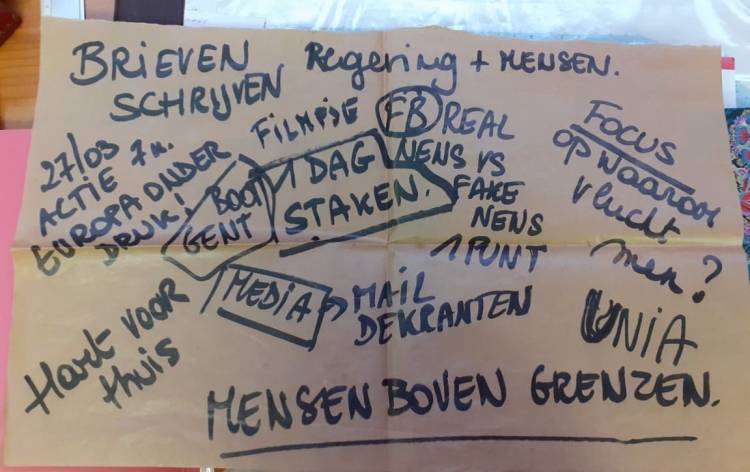 BRIEVEN
SCHRIJVEN
Regering + MENSEN.
FILMPJE
FB REAL
NENS VS
FAKE
NENS
1 PUNT
FOCUS
op waarom
vlucht
men?
27/03
ACTIE 7u.
EUROPA ONDER
DRUK!
BOOT
GENT
1 DAG
STAKEN.
MEDIA → MAIL
DE KRANTEN
UNIA
Hart voor
thuis
MENSEN BOVEN GRENZEN.